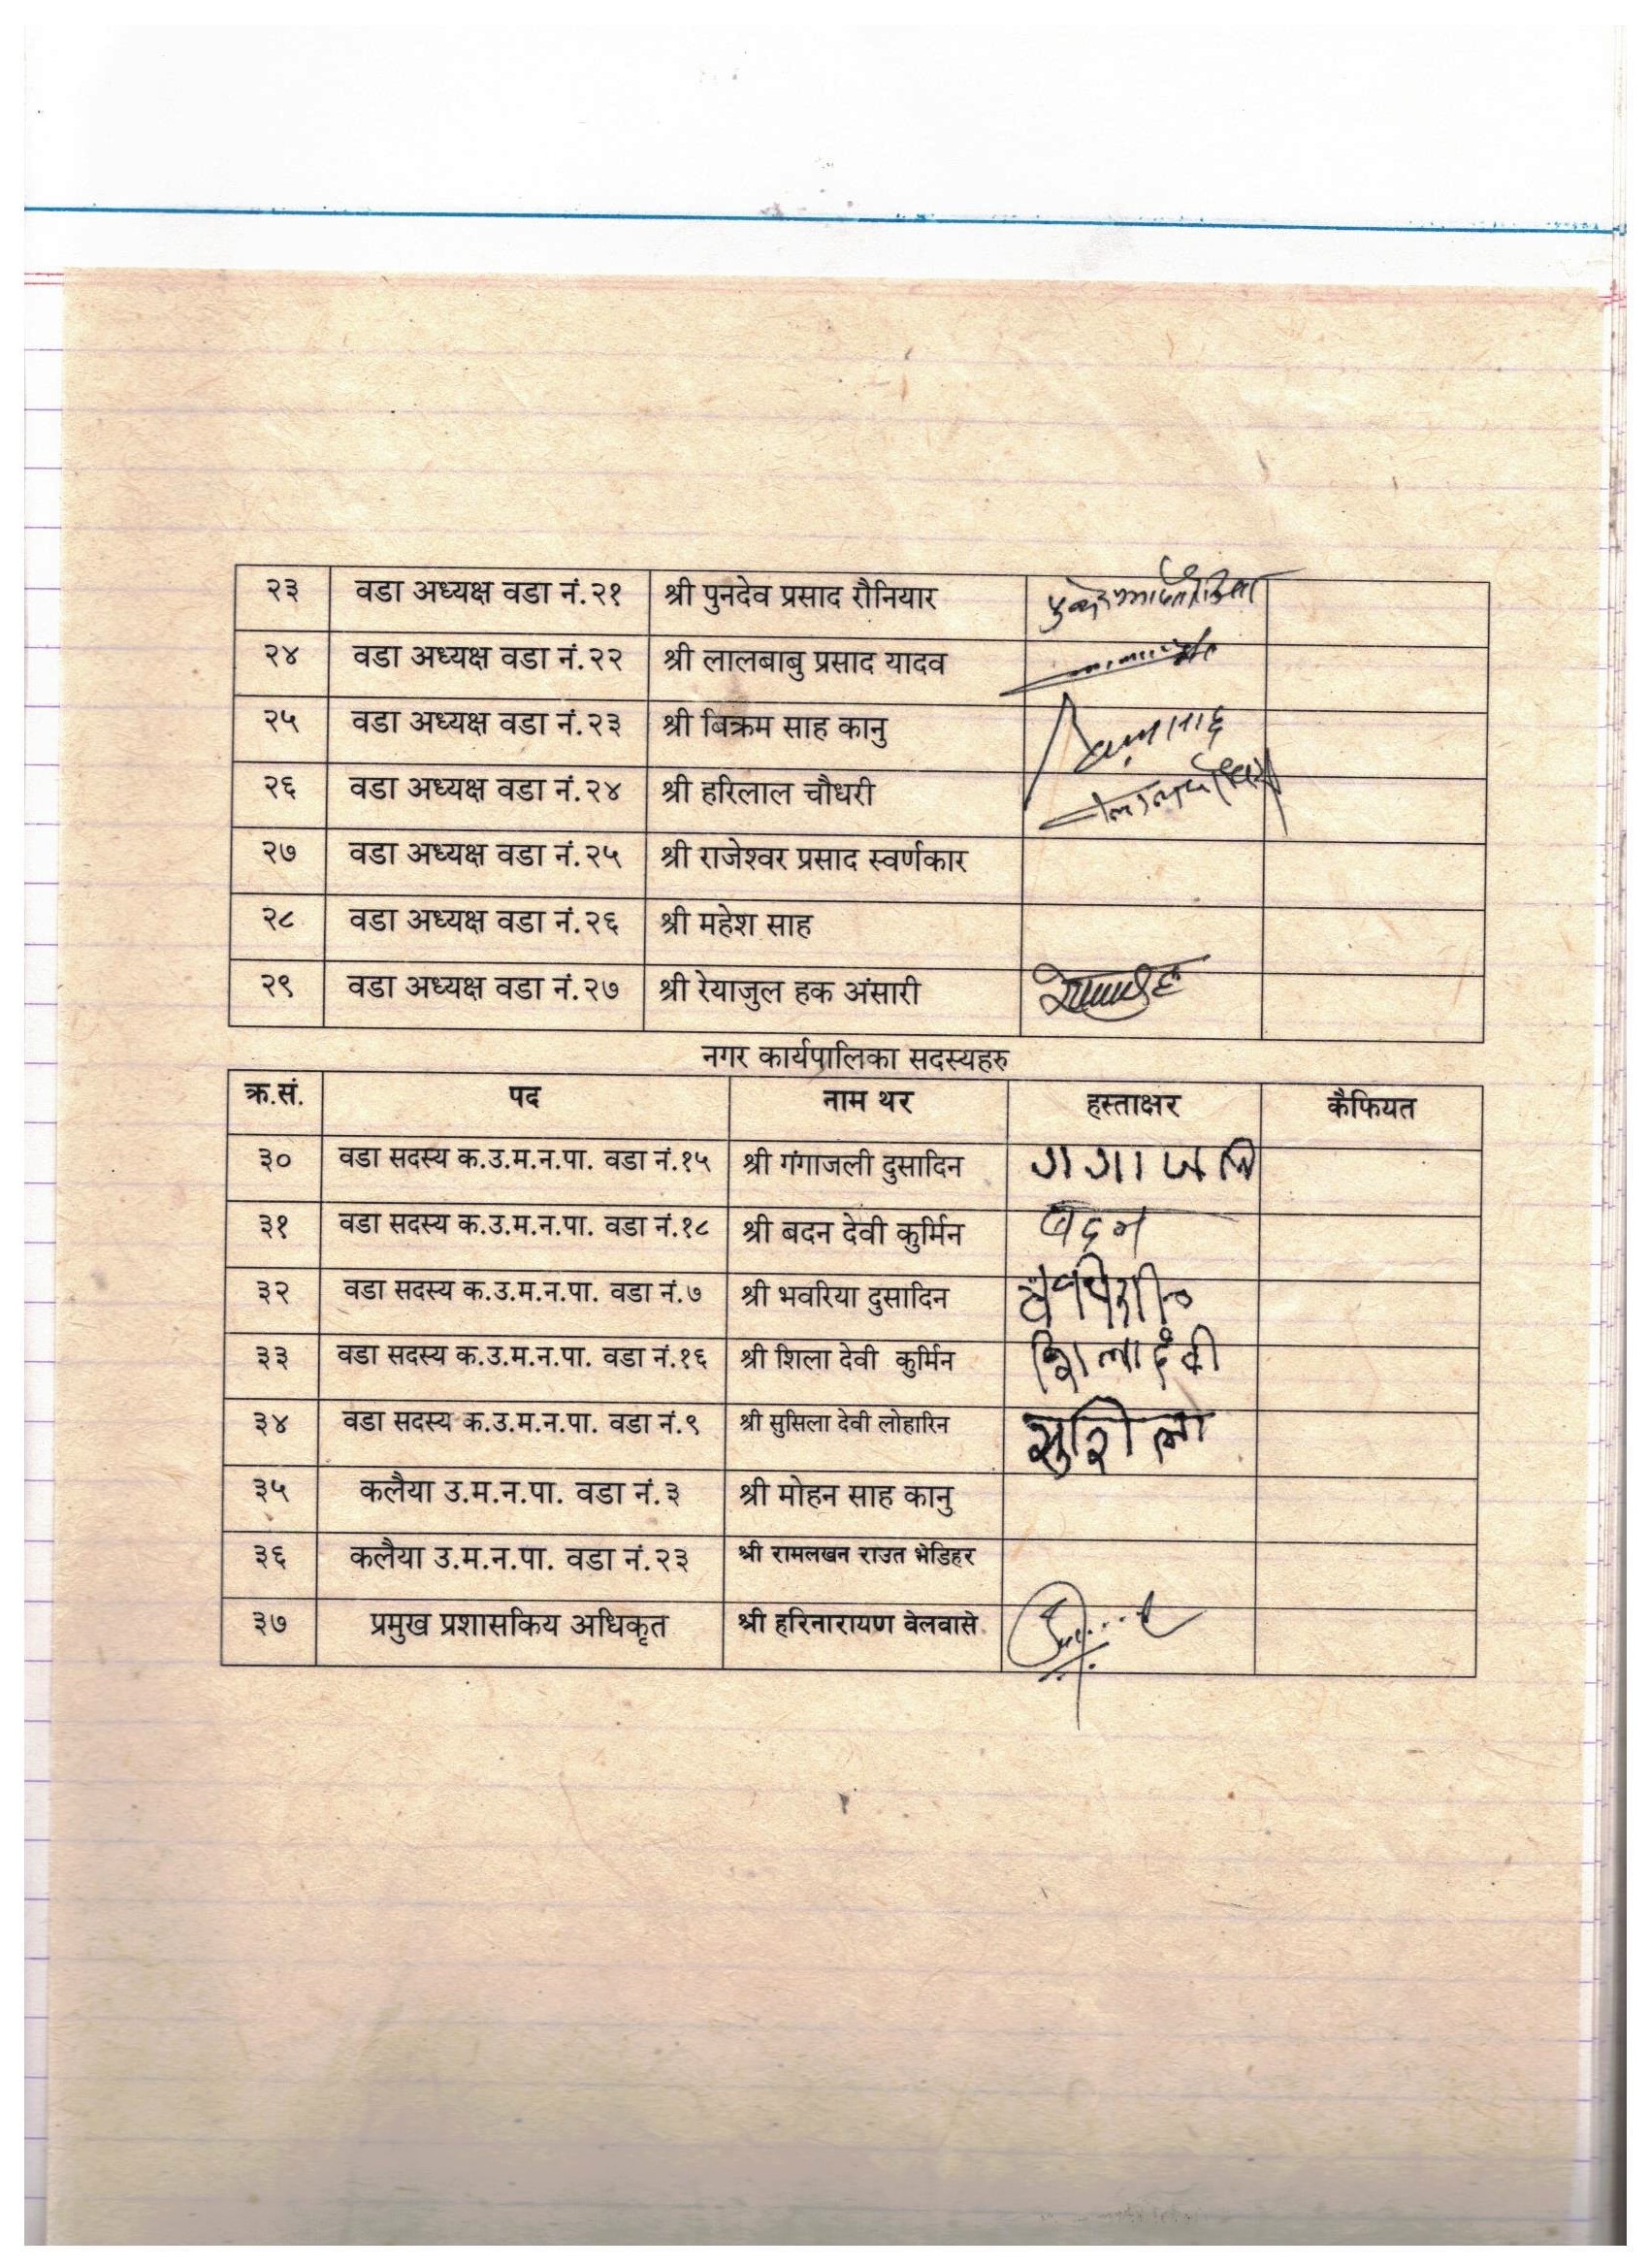 २३ वडा अध्यक्ष वडा नं.२१ श्री पुनदेव प्रसाद रौनियार
२४ वडा अध्यक्ष वडा नं.२२ श्री लालबाबु प्रसाद यादव
२५ वडा अध्यक्ष वडा नं.२३ श्री बिक्रम साह कानु
२६ वडा अध्यक्ष वडा नं.२४ श्री हरिलाल चौधरी
२७ वडा अध्यक्ष वडा नं.२५ श्री राजेश्वर प्रसाद स्वर्णकार
२८ वडा अध्यक्ष वडा नं.२६ श्री महेश साह
२९ वडा अध्यक्ष वडा नं.२७ श्री रेयाजुल हक अंसारी
नगर कार्यपालिका सदस्यहरु
क्र.सं. पद नाम थर हस्ताक्षर कैफियत
३० वडा सदस्य क.उ.म.न.पा. वडा नं.१५ श्री गंगाजली दुसादिन
३१ वडा सदस्य क.उ.म.न.पा. वडा नं.१८ श्री बदन देवी कुर्मिन बदन
३२ वडा सदस्य क.उ.म.न.पा. वडा नं.७ श्री भवरिया दुसादिन
३३ वडा सदस्य क.उ.म.न.पा. वडा नं.१६ श्री शिला देवी कुर्मिन शिलादेवी
३४ वडा सदस्य क.उ.म.न.पा. वडा नं.९ श्री सुसिला देवी लोहारिन सुशिला
३५ कलैया उ.म.न.पा. वडा नं.३ श्री मोहन साह कानु
३६ कलैया उ.म.न.पा. वडा नं.२३ श्री रामलखन राउत भेडिहर
३७ प्रमुख प्रशासकिय अधिकृत श्री हरिनारायण वेलवासे